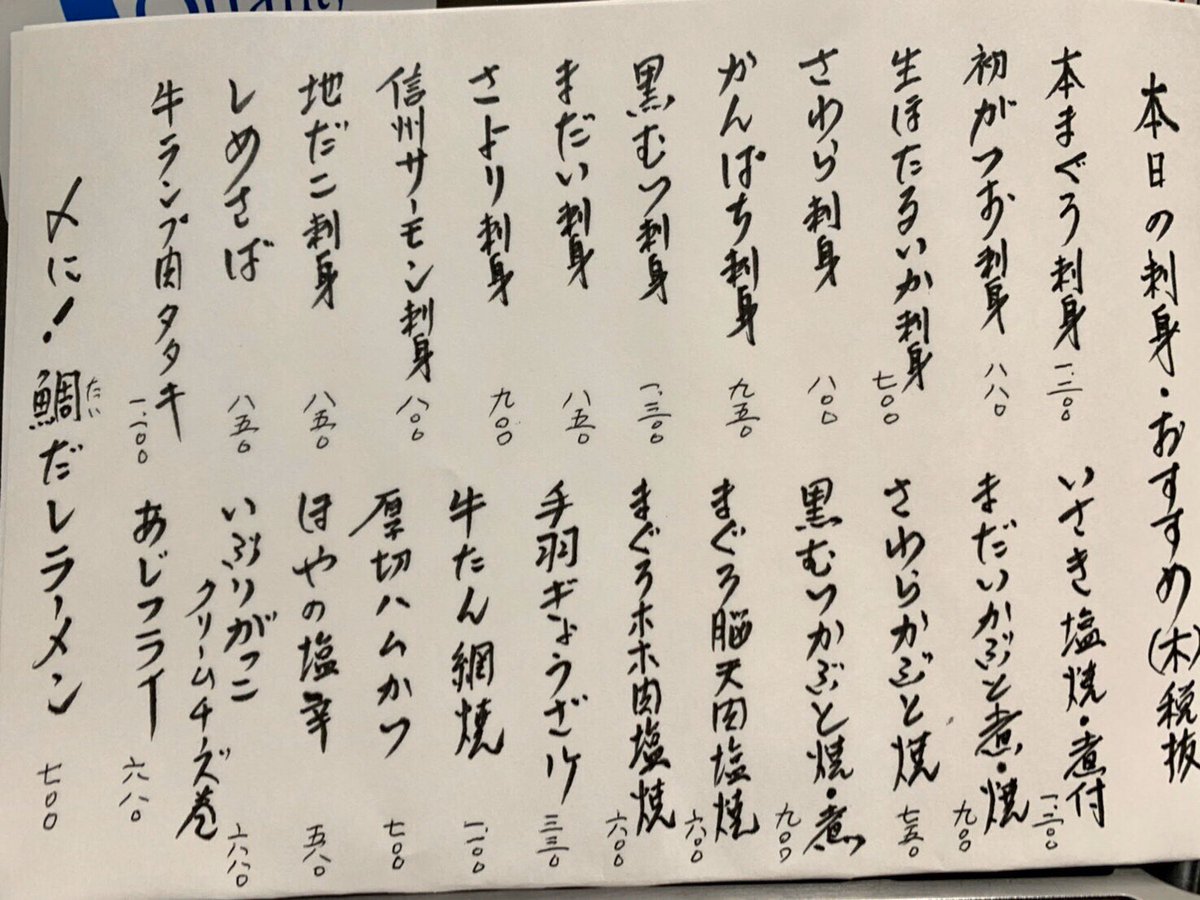 本日の刺身・おすすめ(木)税抜
本まぐろ刺身 一、三〇〇
初がつお刺身 八八〇
生ほたるいか刺身 七〇〇
さわら刺身 八〇〇
かんぱち刺身 九五〇
黒むつ刺身 一、三〇〇
まだい刺身 八五〇
さより刺身 九〇〇
信州サーモン刺身 八〇〇
地だこ刺身 八五〇
しめさば 八五〇
牛ランプ肉タタキ 一、一〇〇
いさき塩焼・煮付 一、二〇〇
まだいかぶと煮・焼 九〇〇
さわらかぶと焼 七五〇
黒むつかぶと焼・煮 九〇〇
まぐろ脳天肉塩焼 六〇〇
まぐろホホ肉塩焼 六〇〇
手羽ぎょうざ1ケ 三三〇
牛たん網焼 一、一〇〇
厚切ハムカツ 七〇〇
ほやの塩辛 五八〇
いぶりがっこ
クリームチーズ巻 六八〇
あじフライ 六八〇
〆に!鯛だしラーメン 七〇〇
たい